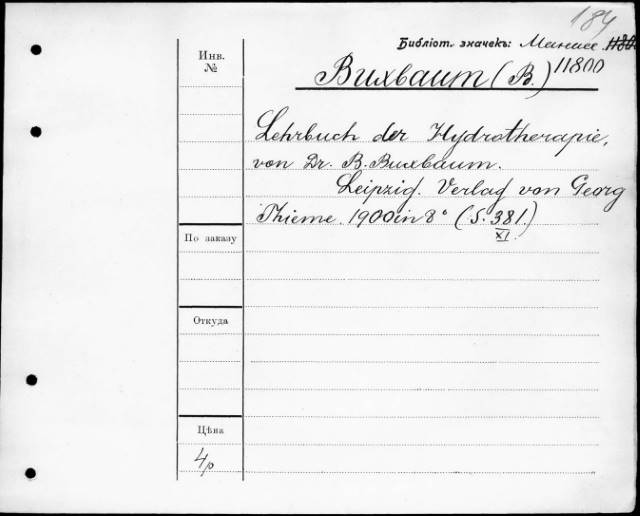 184
Библіот. значекъ: 11800
Инв.
№
Buxbaum (B.) 11800
Lehrbuch der Hydrotherapie,
von Dr. B. Buxbaum.
Leipzig. Verlag von Georg
Thieme. 1900 in 8° (S. 381.)
XI.
По заказу
Откуда
Цѣна
4р